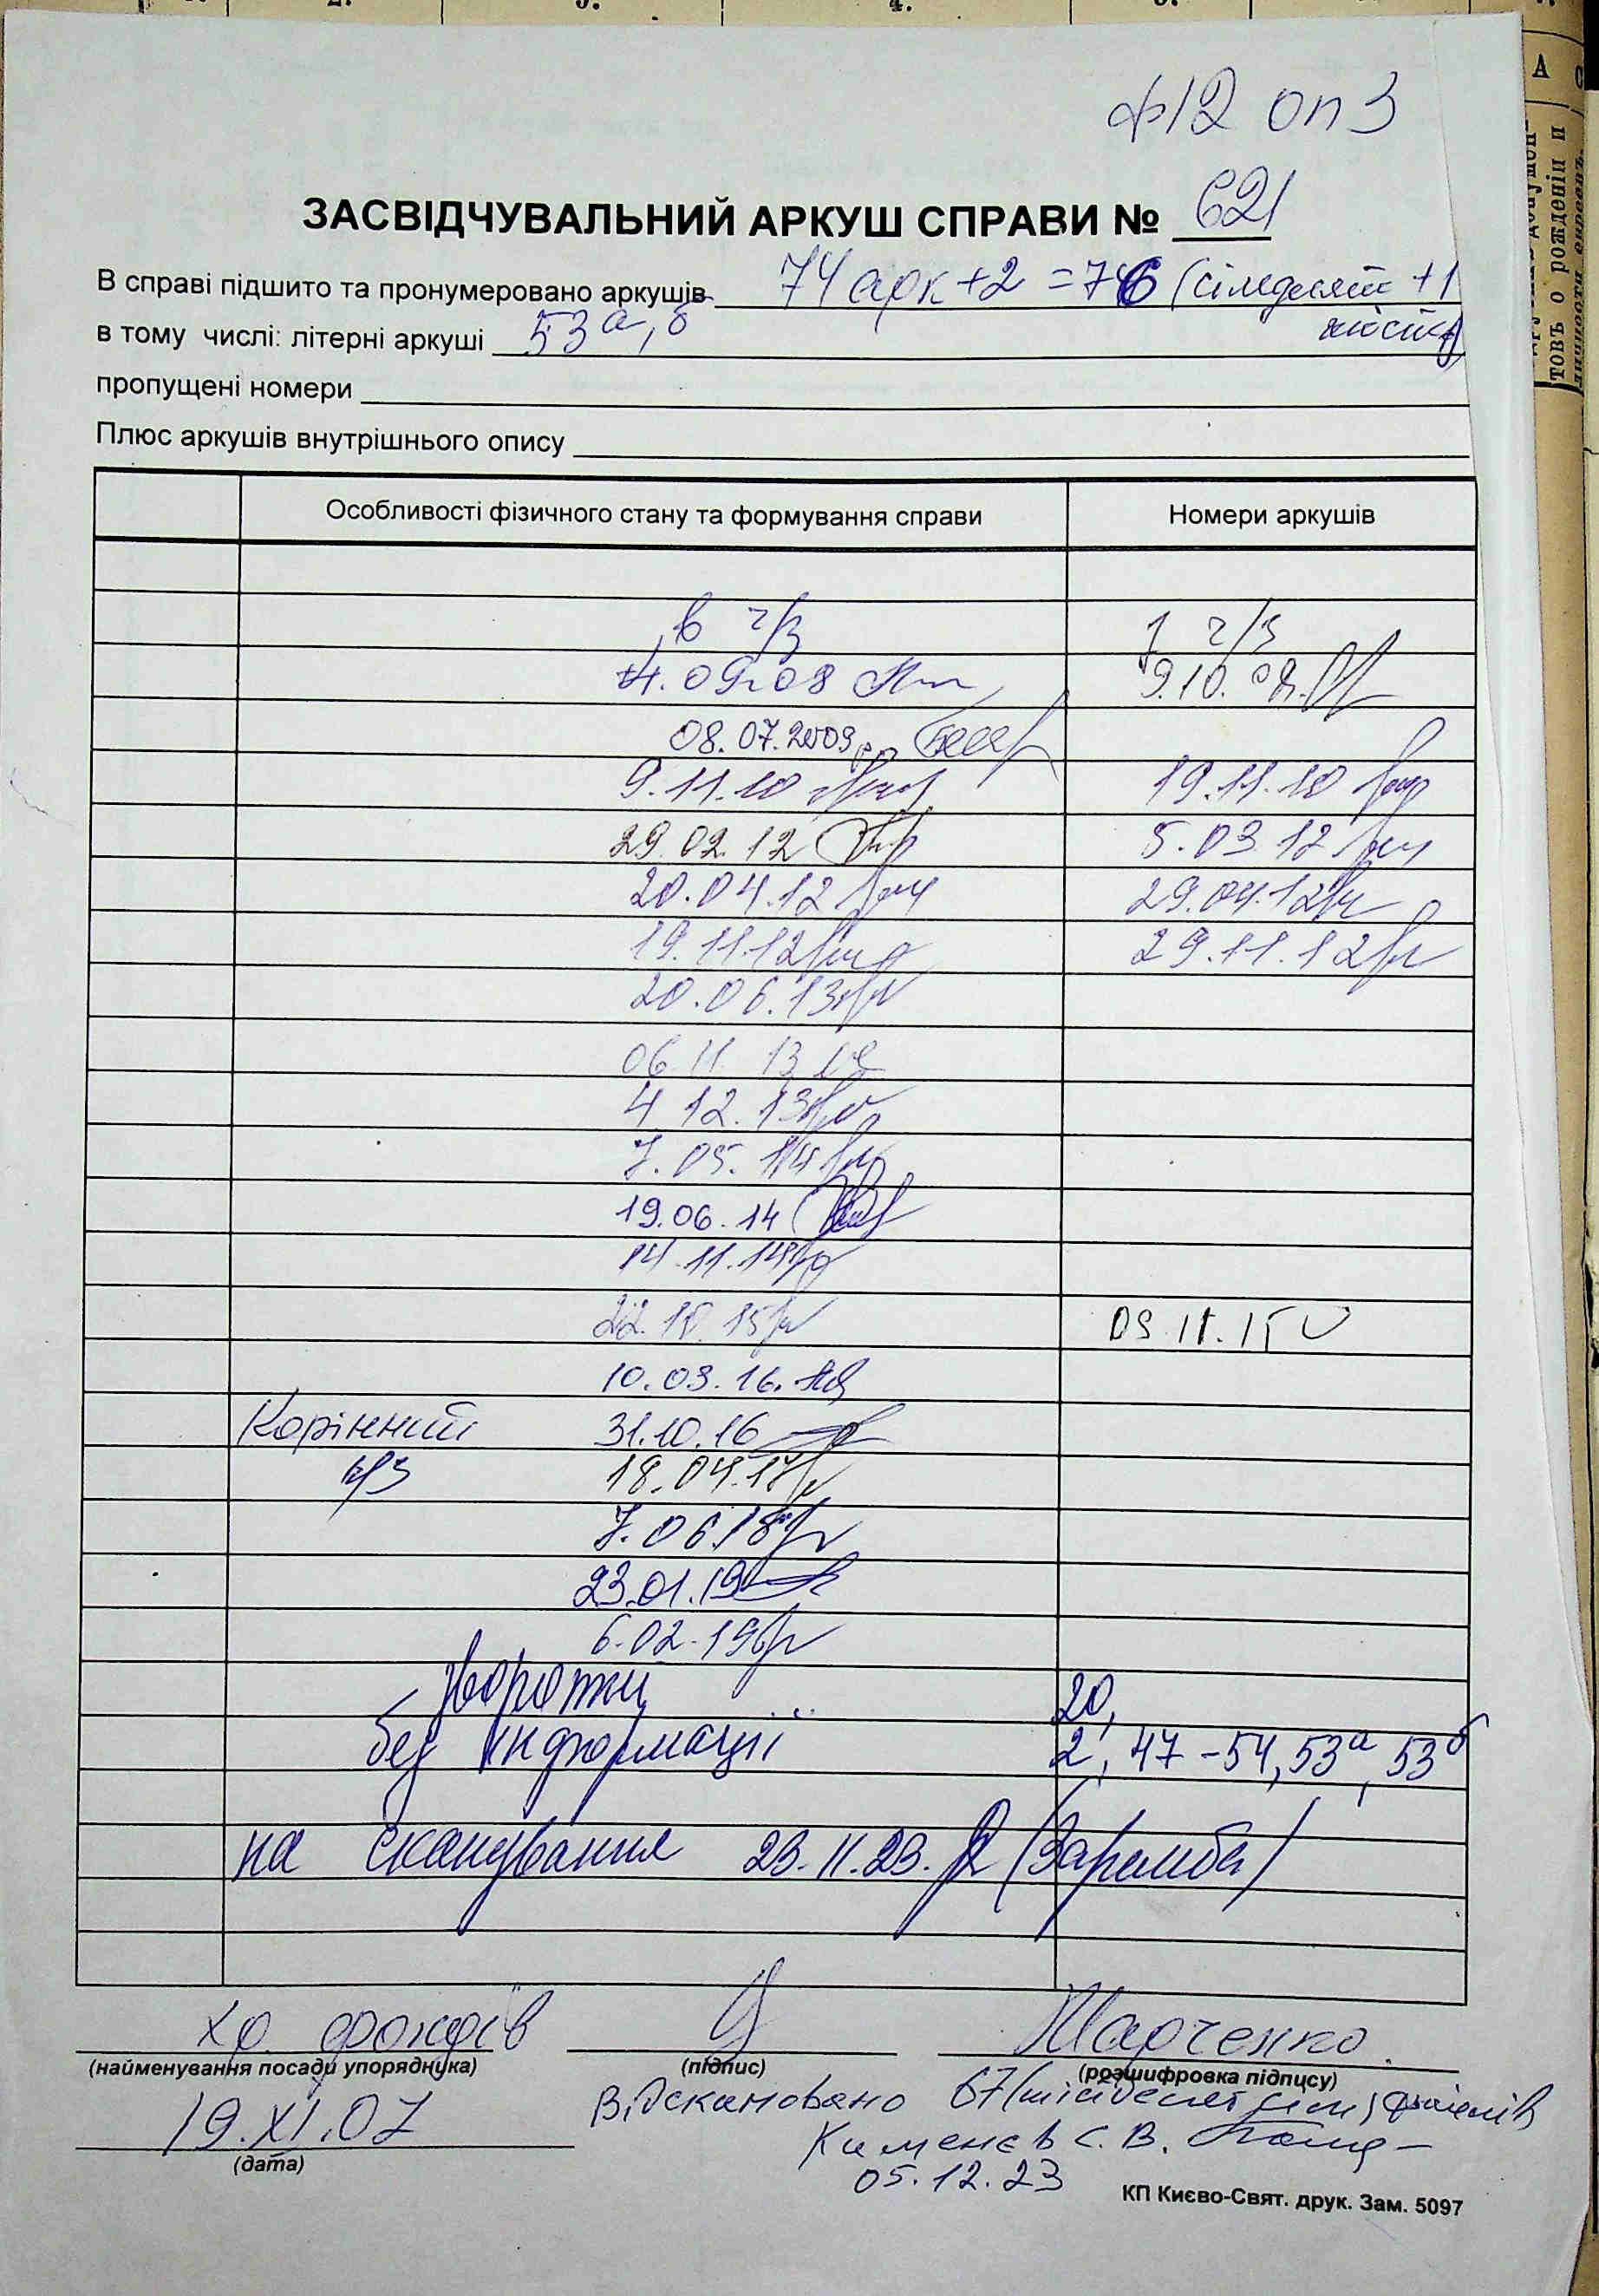 ф12 оп 3
ЗАСВІДЧУВАЛЬНИЙ АРКУШ СПРАВИ № 621
В справі підшито та пронумеровано аркушів 74 арк + 2 = 76 (сімдесят + 1
шість)
в тому числі: літерні аркуші 53 а, б
пропущені номери
Плюс аркушів внутрішнього опису
Особливості фізичного стану та формування справи Номери аркушів
в ч/з з ч/з
4.09.08 9.10.08
08.07.2009р
9.11.10 19.11.10
29.02.12 5.03.12
20.04.12 29.04.12
19.11.12 29.11.12
20.06.13
06 11 13
4.12.13
7.05.14
19.06.14
14.11.14
22.10.15 09.11.15
10.03.16.
Корінний 31.10.16
ч/з 18.04.17
7.06.18
23.01.19
6.02.19
звороти 20,
без інформації 2, 47-54, 53а, 53б
на сканування 23.11.23. (Заремба)
хр. фондів Марченко
(найменування посади упорядника) (підпис) (розшифровка підпису)
Відскановано 67 (шістдесят сім) файлів
19.XI.07
Каменєв С. В.
(дата)
05.12.23
КП Києво-Свят. друк. Зам. 5097